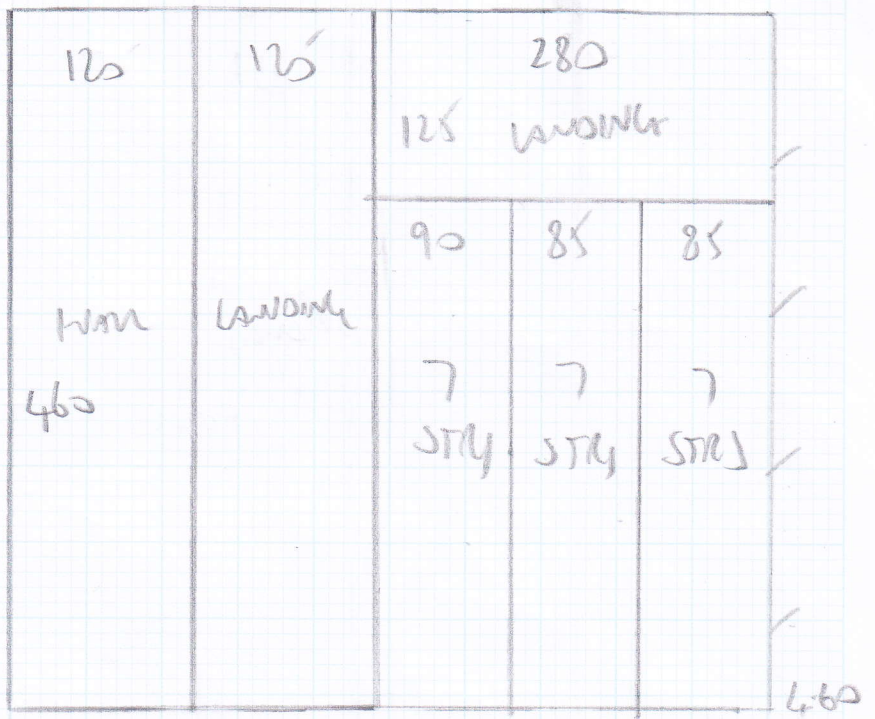 120
125
280
125 LANDING
90
85
85
HALL
LANDING
460
7
STRS
7
STRS
7
STRS
4.60